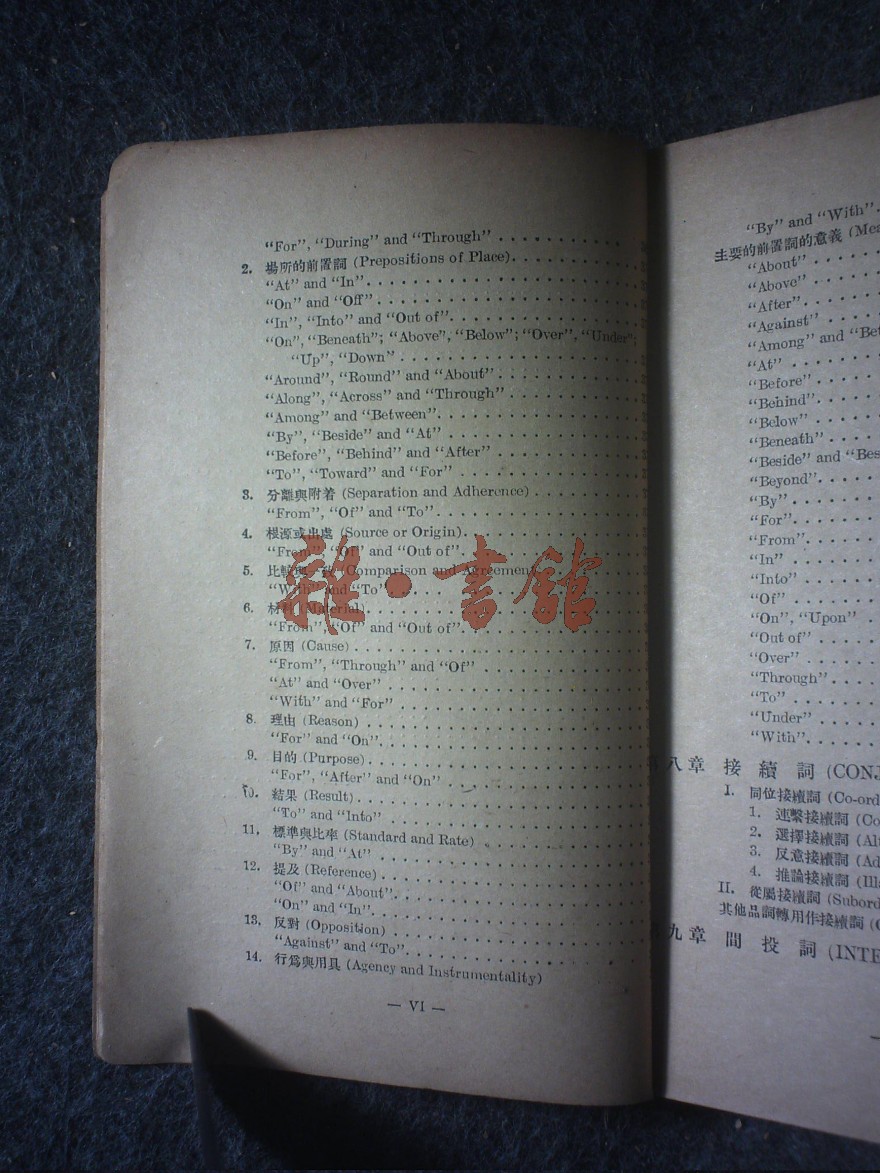 "For", "During" and "Through"
2. 場所的前置詞 (Prepositions of Place)
"At" and "In"
"On" and "Off"
"In", "Into" and "Out of"
"On", "Beneath"; "Above", "Below"; "Over", "Under";
"Up", "Down"
"Around", "Round" and "About"
"Along", "Across" and "Through"
"Among" and "Between"
"By", "Beside" and "At"
"Before", "Behind" and "After"
"To", "Toward" and "For"
3. 分離與附着 (Separation and Adherence)
"From", "Of" and "To"
4. 根源或出處 (Source or Origin)
"From", "Of" and "Out of"
5. 比較與一致 (Comparison and Agreement)
"With" and "To"
6. 材料 (Material)
"From", "Of" and "Out of"
7. 原因 (Cause)
"From", "Through" and "Of"
"At" and "Over"
"With" and "For"
8. 理由 (Reason)
"For" and "On"
9. 目的 (Purpose)
"For", "After" and "On"
10. 結果 (Result)
"To" and "Into"
11. 標準與比率 (Standard and Rate)
"By" and "At"
12. 提及 (Reference)
"Of" and "About"
"On" and "In"
13. 反對 (Opposition)
"Against" and "To"
14. 行爲與用具 (Agency and Instrumentality)
— VI —
雜·書館
"By" and "With"
主要的前置詞的意義 (Mea
"About"
"Above"
"After"
"Against"
"Among" and "Bet
"At"
"Before"
"Behind"
"Below"
"Beneath"
"Beside" and "Bes
"Beyond"
"By"
"For"
"From"
"In"
"Into"
"Of"
"On", "Upon"
"Out of"
"Over"
"Through"
"To"
"Under"
"With"
八章 接續詞 (CONJ
I. 同位接續詞 (Co-ord
1. 連繫接續詞 (Co
2. 選擇接續詞 (Alt
3. 反意接續詞 (Ad
4. 推論接續詞 (Illa
II. 從屬接續詞 (Subord
其他品詞轉用作接續詞 (
九章 間投詞 (INTE